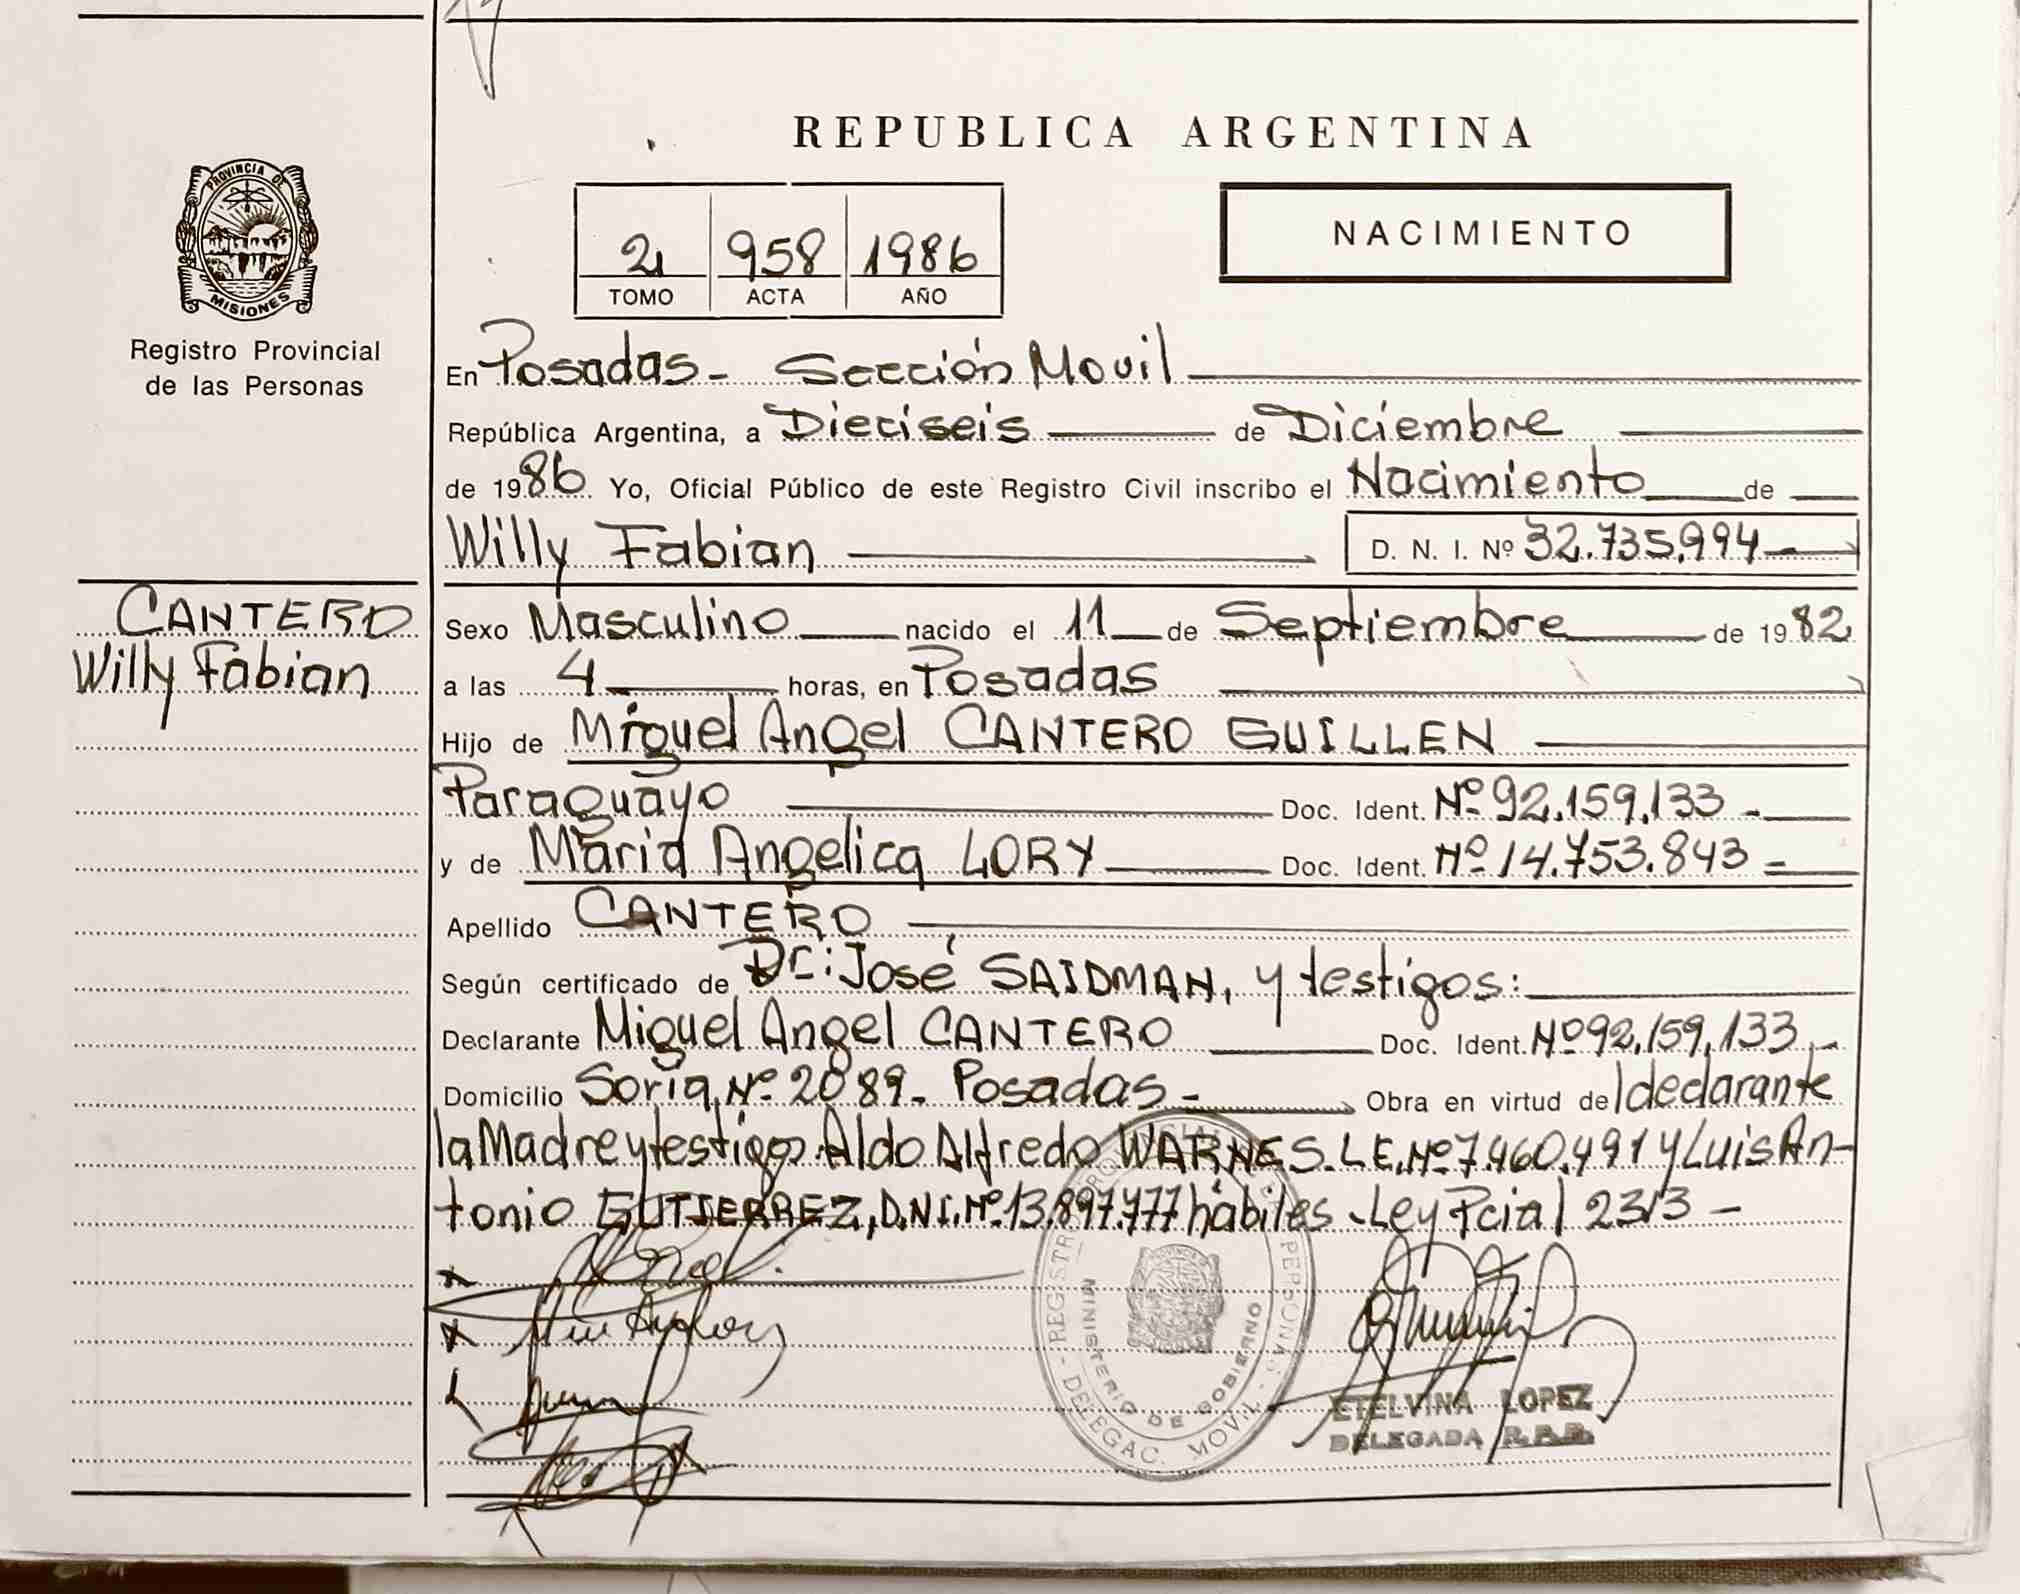 REPUBLICA ARGENTINA
PROVINCIA DE
MISIONES
Registro Provincial
de las Personas
2 958 1986
TOMO ACTA AÑO
NACIMIENTO
En Posadas - Sección Movil
República Argentina, a Dieciseis de Diciembre
de 1986 Yo, Oficial Público de este Registro Civil inscribo el Nacimiento de
Willy Fabian D. N. I. Nº 32.735.994
CANTERO
Willy Fabian
Sexo Masculino nacido el 11 de Septiembre de 1982
a las 4 horas, en Posadas
Hijo de Miguel Angel CANTERO GUILLEN
Paraguayo Doc. Ident. Nº 92.159.133 -
y de Maria Angelica LORY Doc. Ident. Nº 14.753.843 -
Apellido CANTERO
Según certificado de Dr: José SAIDMAN, y testigos:
Declarante Miguel Angel CANTERO Doc. Ident. Nº 92.159.133 -
Domicilio Soria Nº 2089 - Posadas - Obra en virtud de l declarante
la Madre y testigos Aldo Alfredo WARNES. L.E. Nº 7.460.491 y Luis An-
tonio GUTIERREZ, D.N.I. Nº 13.897.477 hábiles - Ley Pcial 2313 -
REGISTRO PROVINCIAL DE PERSONAS
MINISTERIO DE GOBIERNO
DELEGAC. MOVIL
ETELVINA LOPEZ
DELEGADA R.P.P.